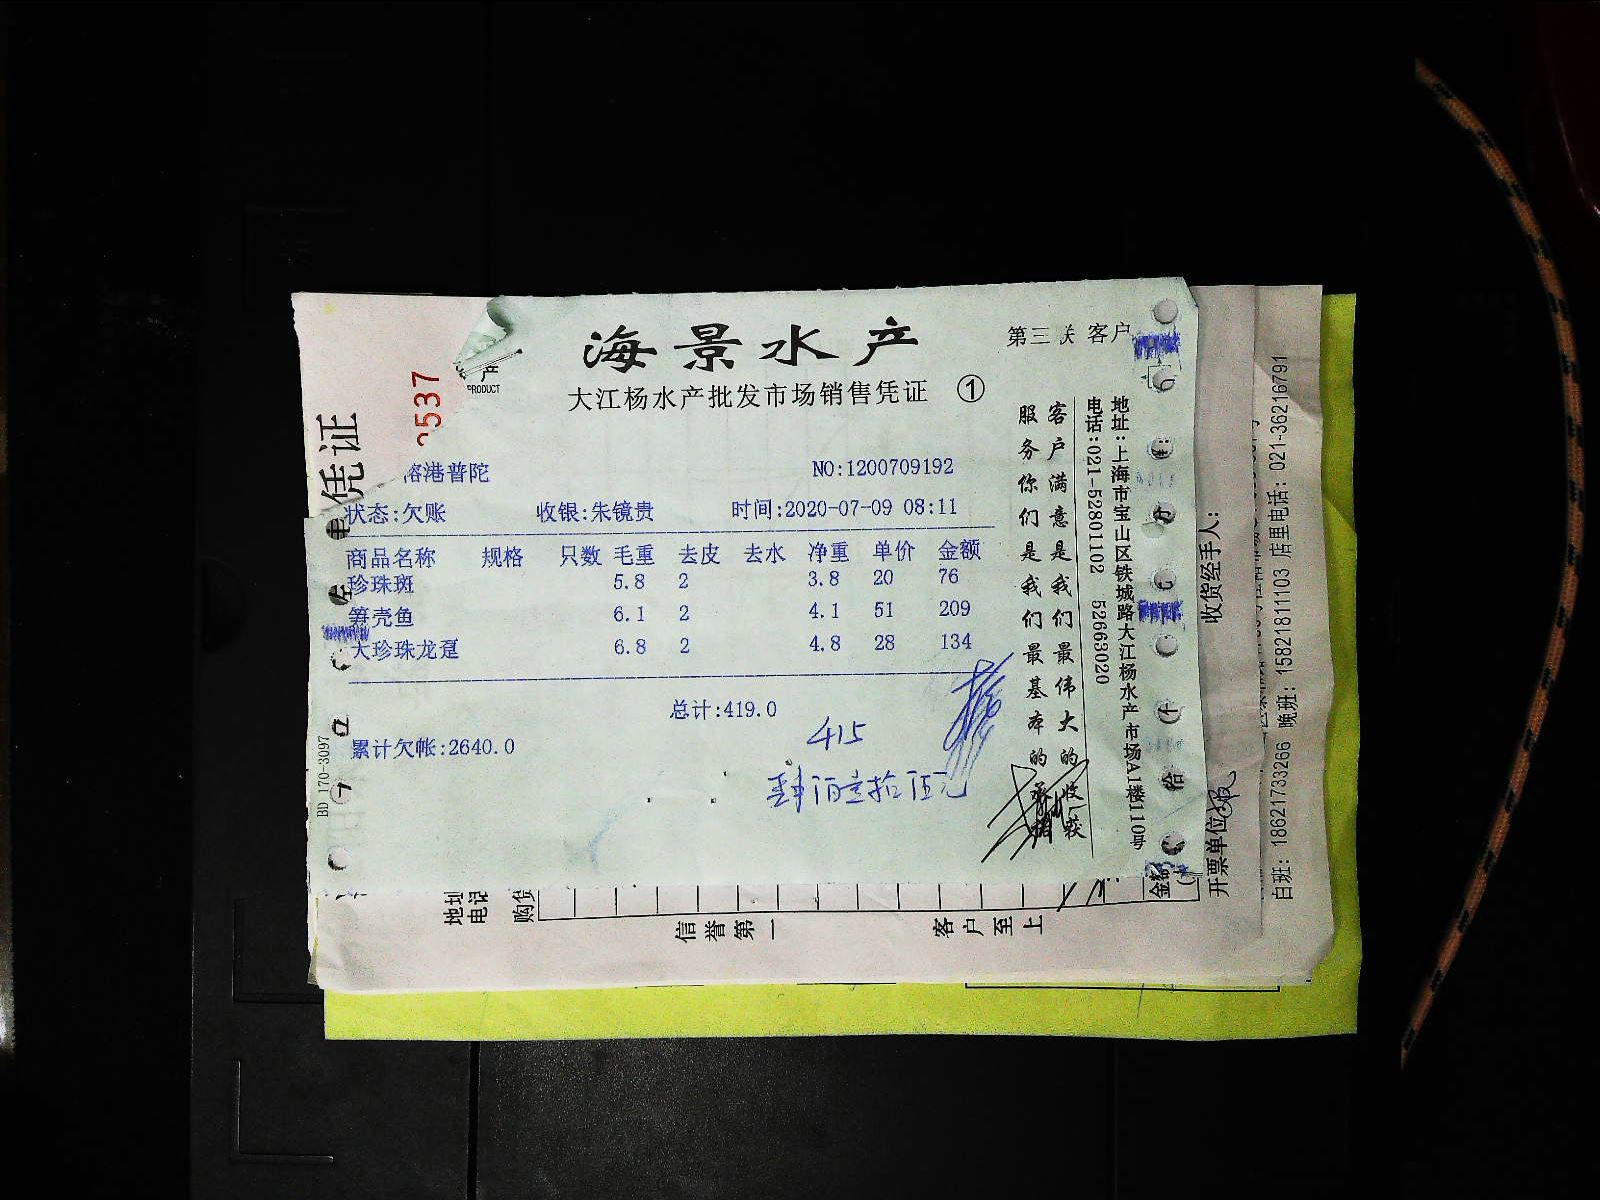 海景水产
第三 客户
大江杨水产批发市场销售凭证 ①
港普陀
NO:1200709192
状态:欠账 收银:朱镜贵 时间:2020-07-09 08:11
商品名称 规格 只数 毛重 去皮 去水 净重 单价 金额
珍珠斑 5.8 2 3.8 20 76
笋壳鱼 6.1 2 4.1 51 209
大珍珠龙趸 6.8 2 4.8 28 134
总计:419.0
累计欠帐:2640.0
415
肆佰壹拾伍元
客户满意是我们最伟大的收获
服务你们是我们最基本的承诺
地址:上海市宝山区铁城路大江杨水产市场A1楼110号
电话:021-52801102 52663020
凭证
537
产
PRODUCT
BD 170-3097
地址
电话
购货
信誉第一 客户至上
金额
收货经手人:
开票单位
白班: 18621733266 晚班: 15821811103 店里电话: 021-36216791